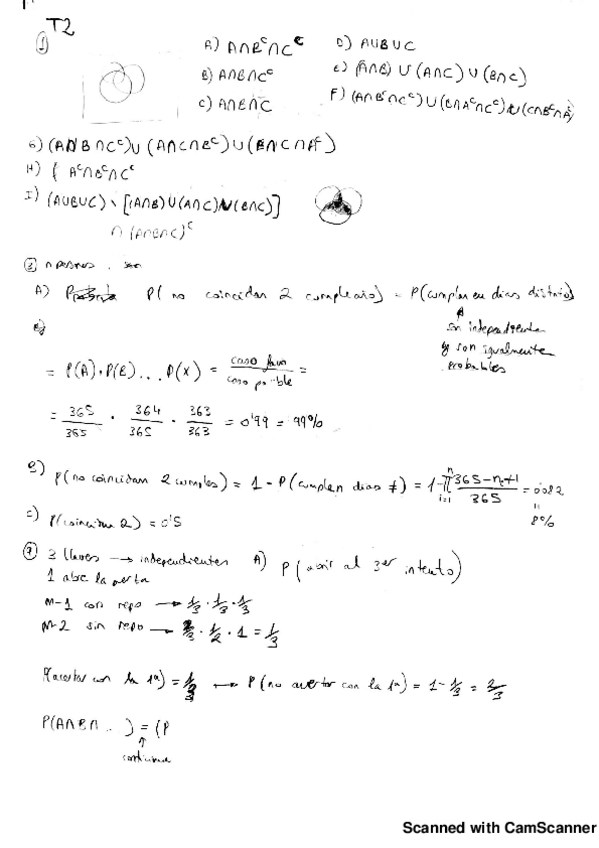 T2
① A) A∩Bᶜ∩Cᶜ D) A∪B∪C
B) A∩B∩Cᶜ E) (A∩B) ∪ (A∩C) ∪ (B∩C)
C) A∩B∩C F) (A∩Bᶜ∩Cᶜ)∪(B∩Aᶜ∩Cᶜ)∪(C∩Bᶜ∩A
G) (A∩B∩Cᶜ)∪(A∩C∩Bᶜ)∪(B∩C∩Aᶜ)
H) ( Aᶜ∩Bᶜ∩Cᶜ
I) (A∪B∪C) \ [(A∩B)∪(A∩C)∪(B∩C)]
∩ (A∩B∩C)ᶜ
A) P( no coincidan 2 cumpleaño) = P(cumplan en días distintos)
son independiente
y son igualmente
probables
= P(A)·P(B)... P(X) = caso favo / caso posible =
= 365/365 · 364/365 · 363/363 = 0'99 = 99%
B) P(no coincidan 2 cumples) = 1 - P(cumplen días ≠) = 1- ∏ⁿᵢ₌₁ 365-n+1 / 365 = 0'082
"
8%
C) P(coincidan 2) = 0'5
3 llaves → independientes A) P(abrir al 3er intento)
1 abre la puerta
M-1 con repo → 1/3 · 1/3 · 1/3
M-2 sin repo → 2/3 · 1/2 · 1 = 1/3
P(acertar con la 1ª) = 1/3 → P(no acertar con la 1ª) = 1 - 1/3 = 2/3
P(A∩B∩ .. ) = (P
↑
Scanned with CamScanner